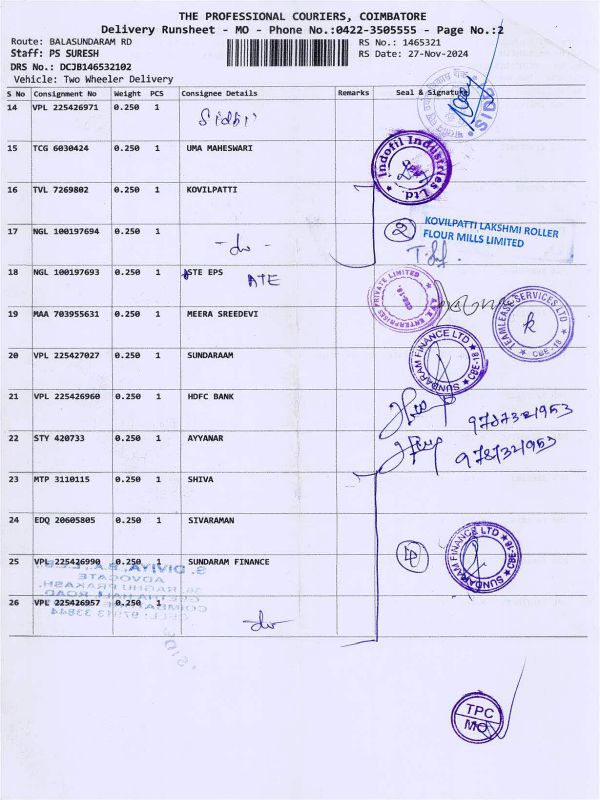 THE PROFESSIONAL COURIERS, COIMBATORE
Delivery Runsheet - MO - Phone No.:0422-3505555 - Page No.:2
Route: BALASUNDARAM RD RS No.: 1465321
Staff: PS SURESH RS Date: 27-Nov-2024
DRS No.: DCJB146532102
Vehicle: Two Wheeler Delivery
S No Consignment No Weight PCS Consignee Details Remarks Seal & Signature
14 VPL 225426971 0.250 1 Siddhi
SIDBI
15 TCG 6030424 0.250 1 UMA MAHESWARI
Indofil Industries Ltd.
16 TVL 7269802 0.250 1 KOVILPATTI
17 NGL 100197694 0.250 1 -do-
2
KOVILPATTI LAKSHMI ROLLER
FLOUR MILLS LIMITED
18 NGL 100197693 0.250 1 STE EPS ATE
ENTERPRISES PRIVATE LIMITED
19 MAA 703955631 0.250 1 MEERA SREEDEVI
TEAMLEASE SERVICES LTD CBE-18
20 VPL 225427027 0.250 1 SUNDARAAM
SUNDARAM FINANCE LTD CBE-18
21 VPL 225426960 0.250 1 HDFC BANK
9787321953
22 STY 420733 0.250 1 AYYANAR
9787321953
23 MTP 3110115 0.250 1 SHIVA
24 EDQ 20605805 0.250 1 SIVARAMAN
SUNDARAM FINANCE LTD CBE-18
25 VPL 225426990 0.250 1 SUNDARAM FINANCE
S. DIVIYA, B.A., L.L.B.
ADVOCATE
26 VPL 225426957 0.250 1 do
TPC
MO